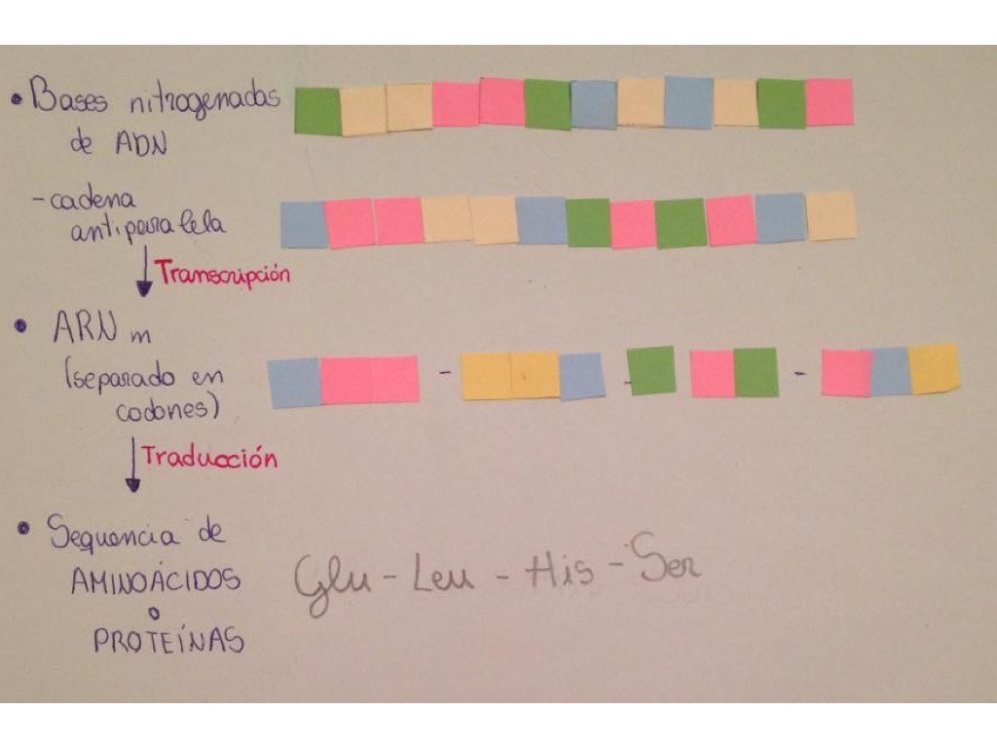 • Bases nitrogenadas
de ADN
- cadena
antiparalela
Transcripción
• ARN m
(separado en
codones)
Traducción
• Sequencia de
AMINOÁCIDOS
o
PROTEÍNAS
Glu - Leu - His - Ser